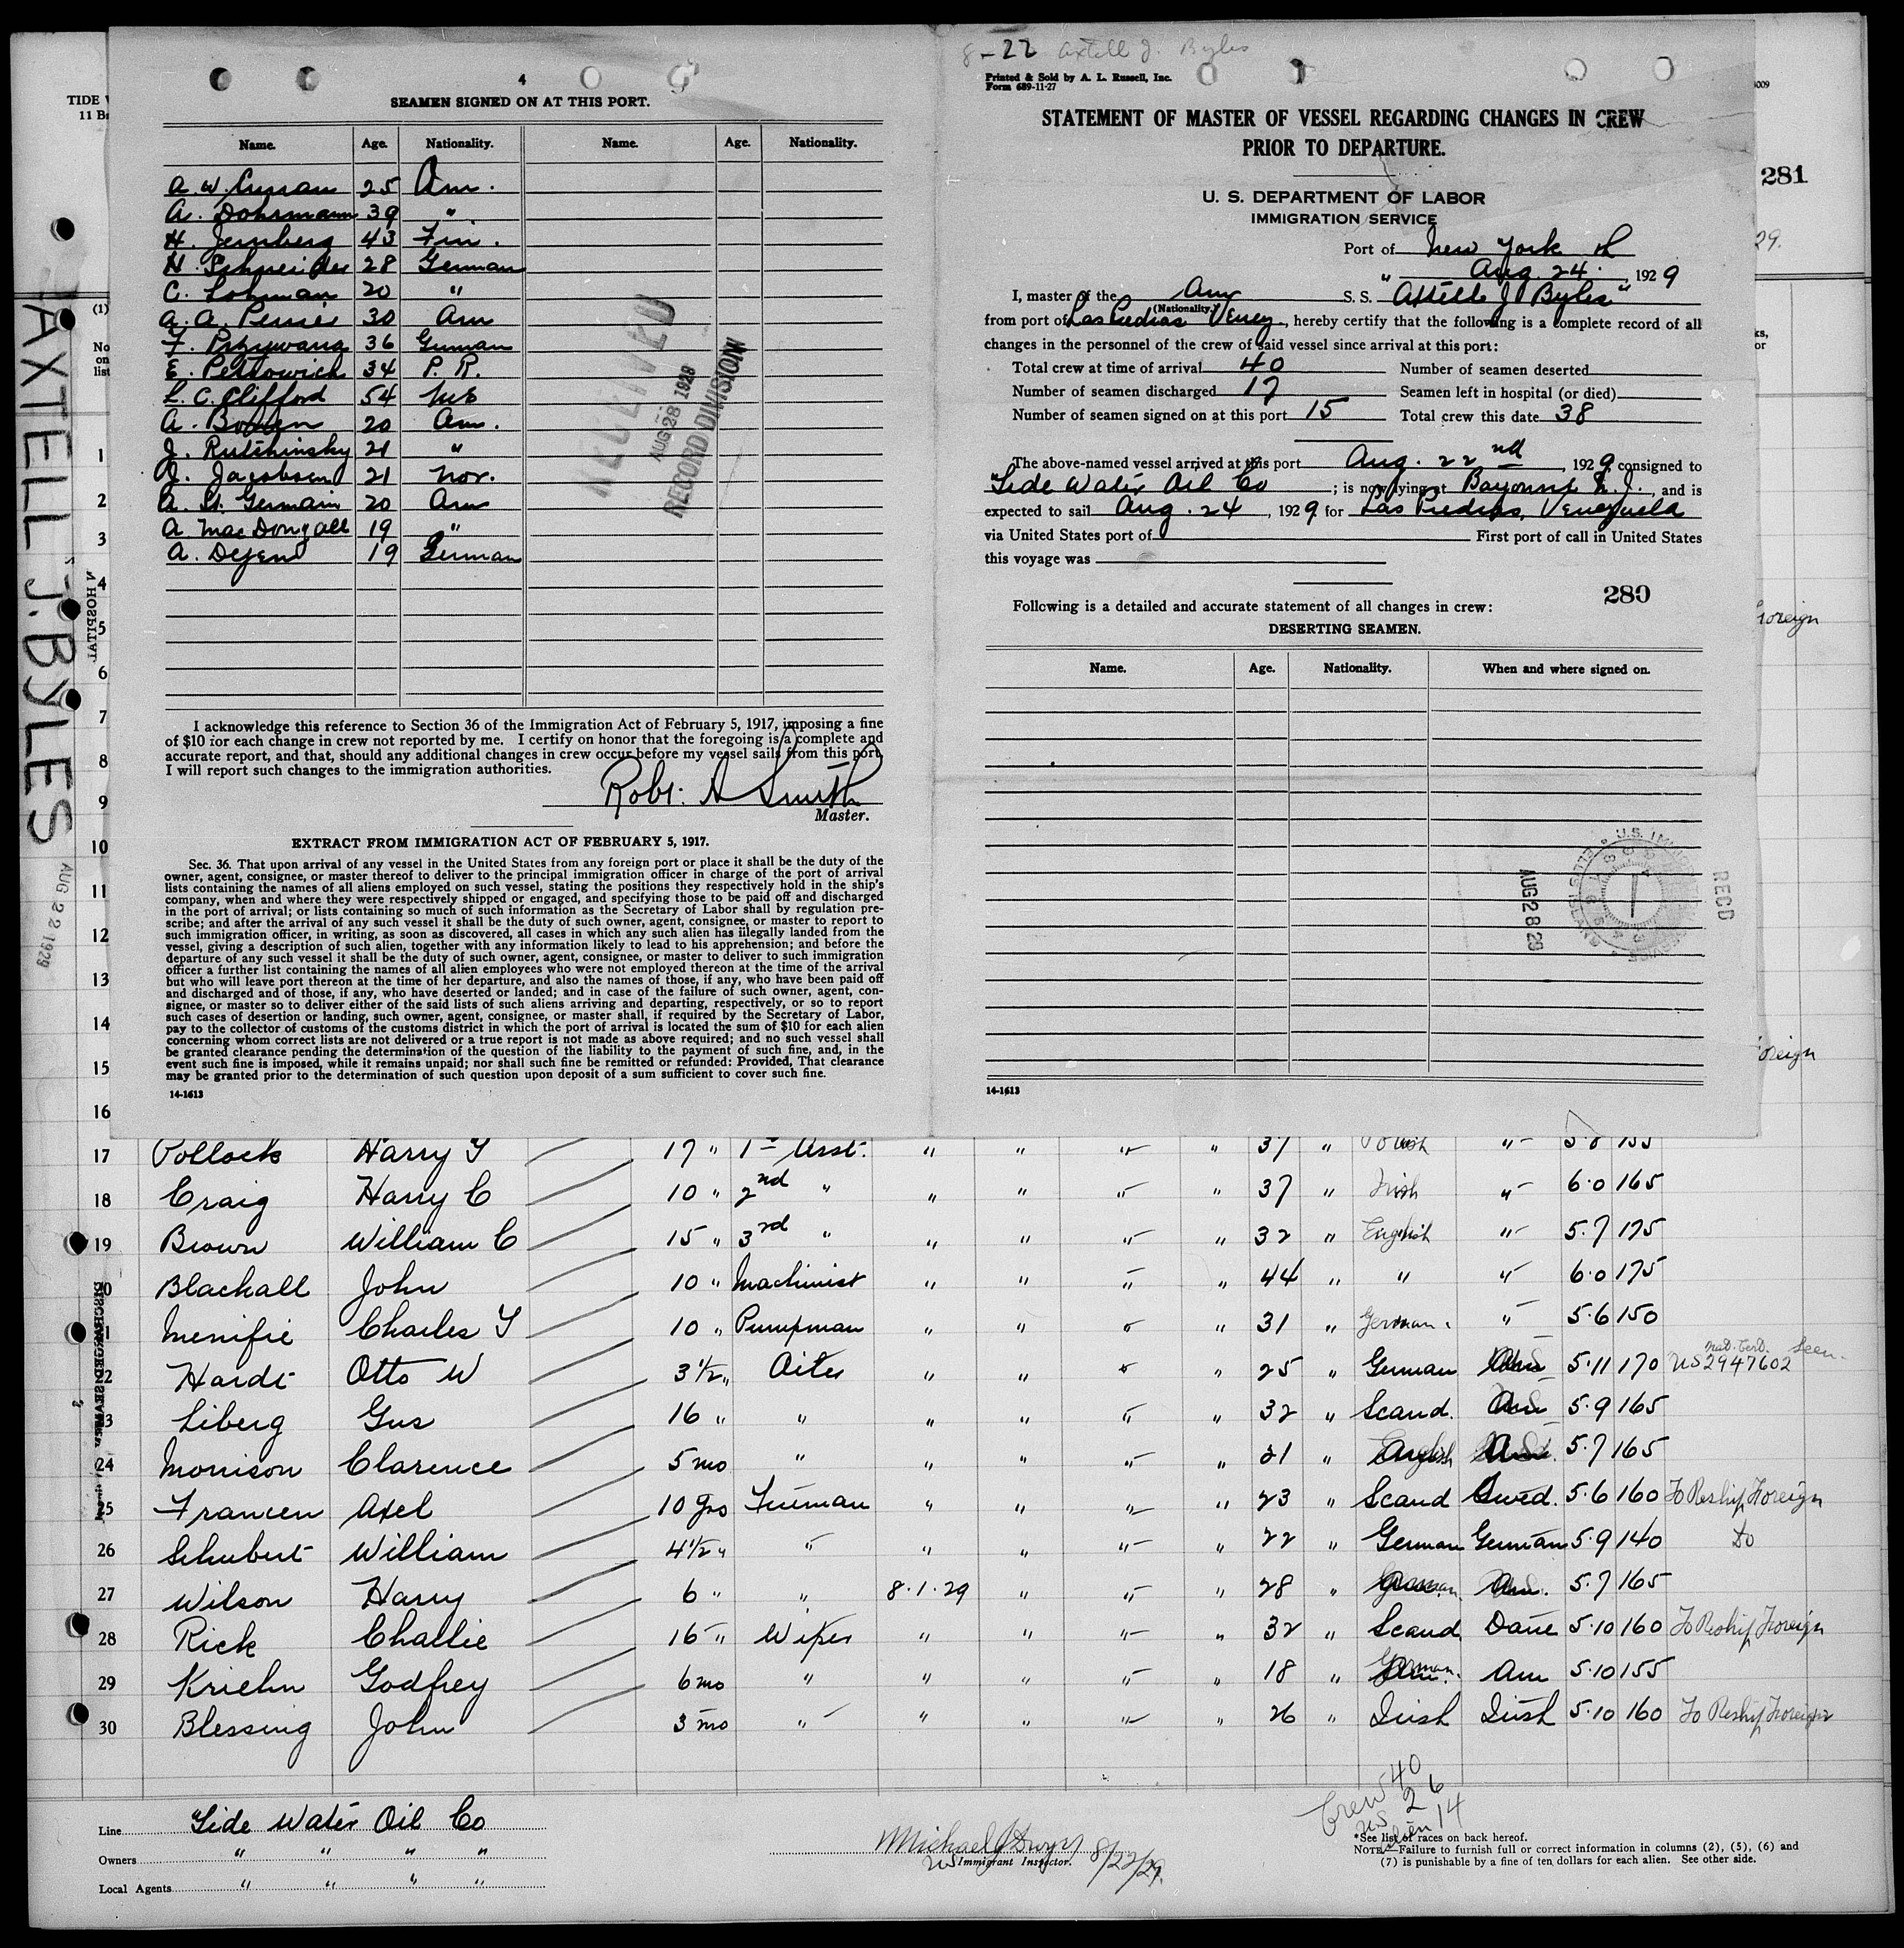 8-22 Axtell J. Byles
4
SEAMEN SIGNED ON AT THIS PORT.
Name. Age. Nationality. Name. Age. Nationality.
A. W. Curran 25 Am.
A. Dohrmann 39 "
H. Jernberg 43 Fin.
H. Schneider 28 German
C. Lohman 20 "
30 Am
36 German
E. Petrowich 34 P. R.
L. C. Clifford 54 US
A. 20 Am.
J. Rutchinsky 21 "
J. Jacobsen 21 Nor.
A. St. Germain 20 Am
A. MacDongall 19 "
A. Dejen 19 German
RECEIVED
AUG 28 1929
RECORD DIVISION
I acknowledge this reference to Section 36 of the Immigration Act of February 5, 1917, imposing a fine
of $10 for each change in crew not reported by me. I certify on honor that the foregoing is a complete and
accurate report, and that, should any additional changes in crew occur before my vessel sails from this port,
I will report such changes to the immigration authorities.
Robt. A Smith
Master.
EXTRACT FROM IMMIGRATION ACT OF FEBRUARY 5, 1917.
Sec. 36. That upon arrival of any vessel in the United States from any foreign port or place it shall be the duty of the
owner, agent, consignee, or master thereof to deliver to the principal immigration officer in charge of the port of arrival
lists containing the names of all aliens employed on such vessel, stating the positions they respectively hold in the ship's
company, when and where they were respectively shipped or engaged, and specifying those to be paid off and discharged
in the port of arrival; or lists containing so much of such information as the Secretary of Labor shall by regulation pre-
scribe; and after the arrival of any such vessel it shall be the duty of such owner, agent, consignee, or master to report to
such immigration officer, in writing, as soon as discovered, all cases in which any such alien has illegally landed from the
vessel, giving a description of such alien, together with any information likely to lead to his apprehension; and before the
departure of any such vessel it shall be the duty of such owner, agent, consignee, or master to deliver to such immigration
officer a further list containing the names of all alien employees who were not employed thereon at the time of the arrival
but who will leave port thereon at the time of her departure, and also the names of those, if any, who have been paid off
and discharged and of those, if any, who have deserted or landed; and in case of the failure of such owner, agent, con-
signee, or master so to deliver either of the said lists of such aliens arriving and departing, respectively, or so to report
such cases of desertion or landing, such owner, agent, consignee, or master shall, if required by the Secretary of Labor,
pay to the collector of customs of the customs district in which the port of arrival is located the sum of $10 for each alien
concerning whom correct lists are not delivered or a true report is not made as above required; and no such vessel shall
be granted clearance pending the determination of the question of the liability to the payment of such fine, and, in the
event such fine is imposed, while it remains unpaid; nor shall such fine be remitted or refunded: Provided, That clearance
may be granted prior to the determination of such question upon deposit of a sum sufficient to cover such fine.
14-1613
Printed & Sold by A. L. Russell, Inc.
Form 689-11-27
STATEMENT OF MASTER OF VESSEL REGARDING CHANGES IN CREW
PRIOR TO DEPARTURE.
U. S. DEPARTMENT OF LABOR
IMMIGRATION SERVICE
Port of New York
" Aug. 24. , 1929
I, master of the Am S. S. "Axtell J Byles"
(Nationality.)
from port of Las Piedras Venez. , hereby certify that the following is a complete record of all
changes in the personnel of the crew of said vessel since arrival at this port:
Total crew at time of arrival 40 Number of seamen deserted
Number of seamen discharged 17 Seamen left in hospital (or died)
Number of seamen signed on at this port 15 Total crew this date 38
The above-named vessel arrived at this port Aug. 22nd , 1929 consigned to
Tide Water Oil Co ; is now lying at Bayonne N. J. , and is
expected to sail Aug. 24 , 1929 for Las Piedras, Venezuela
via United States port of First port of call in United States
this voyage was
280
Following is a detailed and accurate statement of all changes in crew:
DESERTING SEAMEN.
Name. Age. Nationality. When and where signed on.
RECD
AUG 28 29
14-1613
TIDE
281
29.
(1)
No
on
list
AXTELL J. BYLES
AUG 22 1929
HOSPITAL
Foreign
Foreign
1
2
3
4
5
6
7
8
9
10
11
12
13
14
15
16
17 Pollock Harry T 17 " 1st Asst. " " " " 37 " Polish " 5.8 155
18 Craig Harry C 10 " 2nd " " " " " 37 " Irish " 6.0 165
19 Brown William C 15 " 3rd " " " " " 32 " English " 5.7 175
20 Blackall John 10 " Machinist " " " " 44 " " " 6.0 175
21 Menifie Charles T 10 " Pumpman " " " " 31 " German. " 5.6 150
22 Hardt Otto W 3 1/2 " Oiler " " " " 25 " German 5.11 170 Nat. Cert. Seen. US 2947602
23 Liberg Gus 16 " " " " " " 32 " Scand. 5.9 165
24 Morrison Clarence 5 mo " " " " " 21 " English 5.7 165
25 Francen Axel 10 yrs Fireman " " " " 23 " Scand Swed. 5.6 160 To Reship Foreign
26 Schubert William 4 1/2 " " " " " " 22 " German German 5.9 140 Do
27 Wilson Harry 6 " " 8.1.29 " " " 28 " 5.7 165
28 Rick Challie 15 " Wiper " " " " 32 " Scand. Dane 5.10 160 To Reship Foreign
29 Kriehn Godfrey 6 mo " " " " " 18 " German. Am 5.10 155
30 Blessing John 3 mo " " " " " 26 " Irish Irish 5.10 160 To Reship Foreign
Crew 40
US 26
Alien 14
Line Tide Water Oil Co
Owners " " " "
Local Agents " " " "
Michael J Dwyer 8/22/29.
US Immigrant Inspector.
*See list of races on back hereof.
NOTE.—Failure to furnish full or correct information in columns (2), (5), (6) and
(7) is punishable by a fine of ten dollars for each alien. See other side.